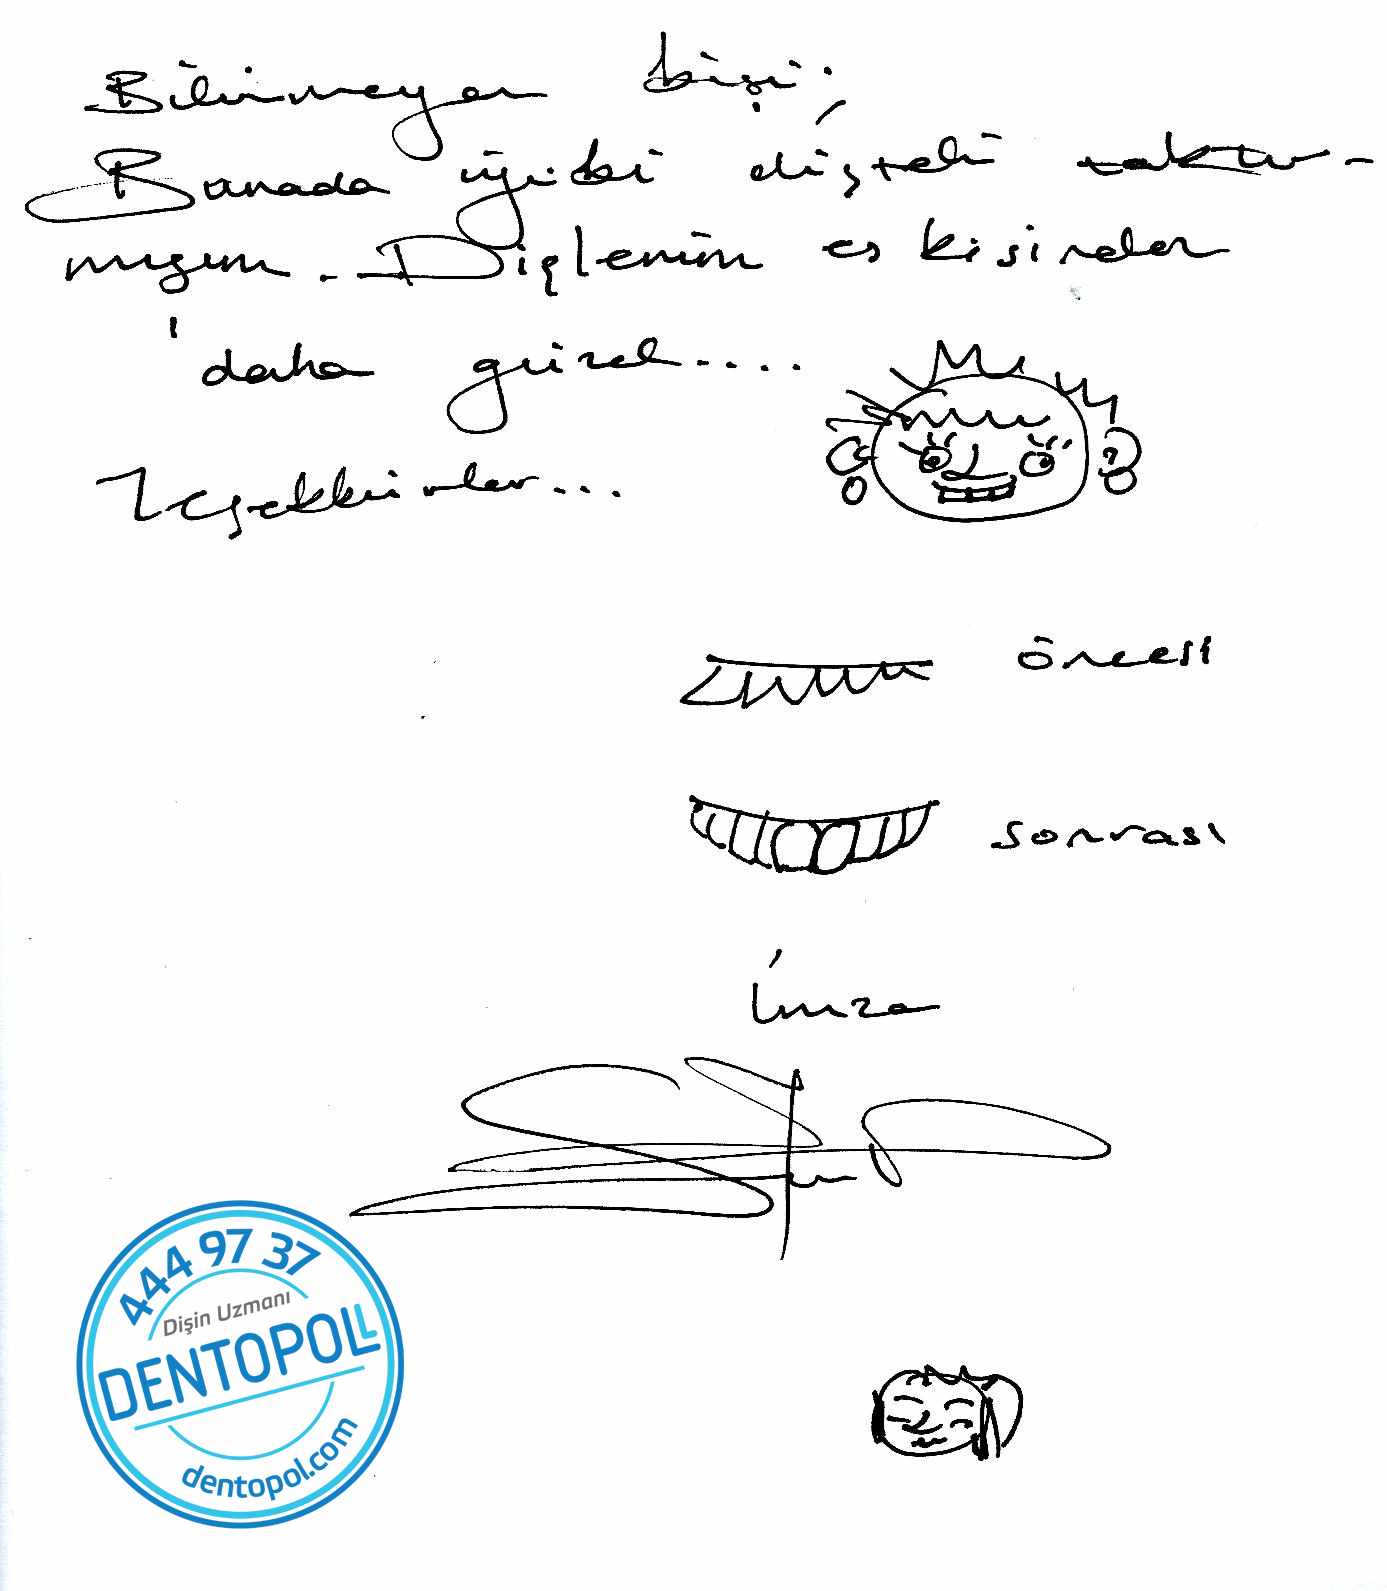 Bilinmeyen kişi;
Banada iyiki diş teli taktır-
mışım. Dişlerim eskisinden
daha güzel....
Teşekkürler...
öncesi
sonrası
İmza
444 97 37
Dişin Uzmanı
DENTOPOL
dentopol.com